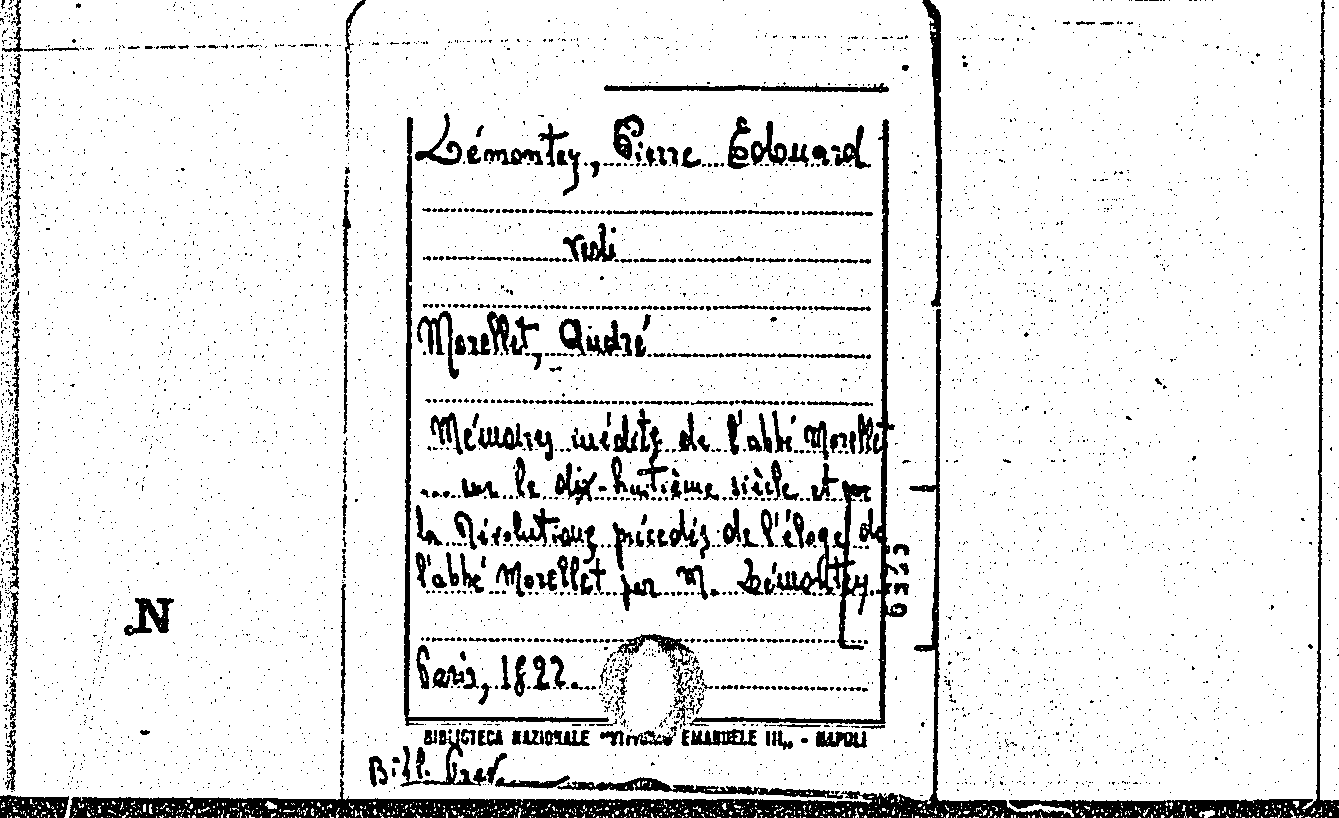 Lémontey, Pierre Edouard
vedi
Morellet, André
Mémoires inédits de l'abbé Morellet
... sur le dix-huitième siècle et sur
la Révolution; précedés de l'éloge de
l'abbé Morellet par M. Lémontey.
Paris, 1822.
BIBLIOTECA NAZIONALE "VITTORIO EMANUELE III„ - NAPOLI
Bibl. Prov.
6323
N